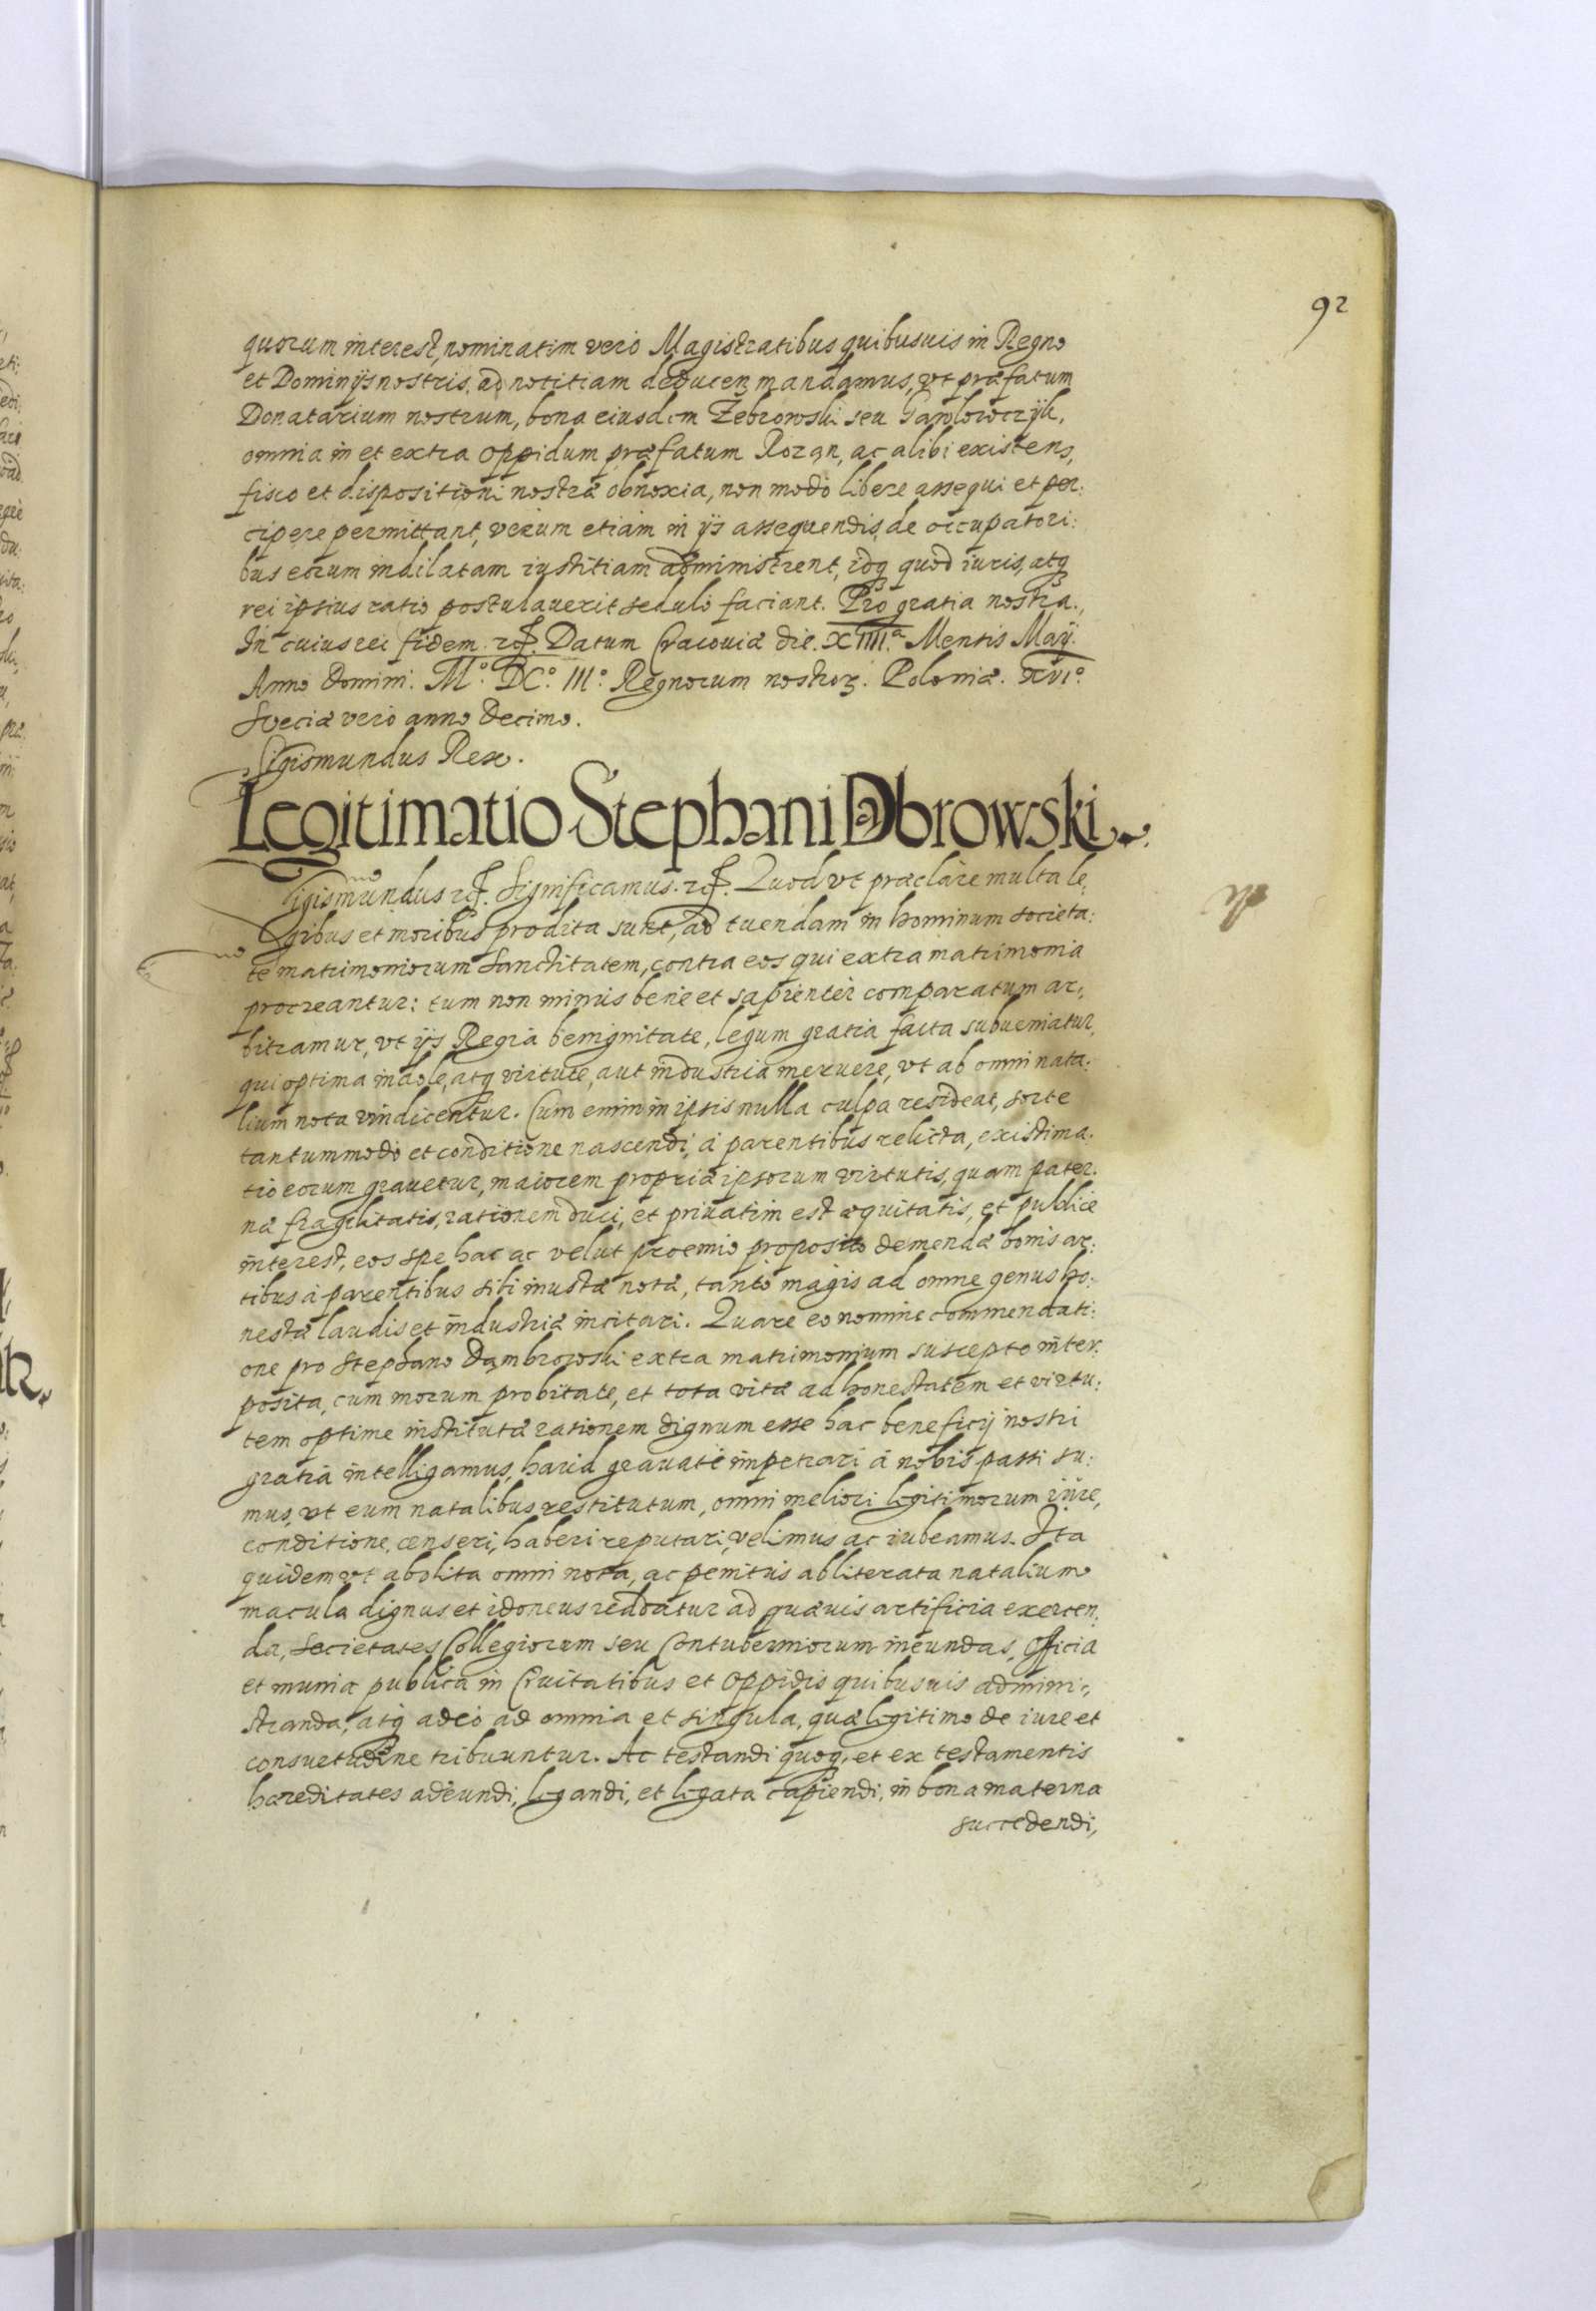 92
quorum interest, nominatim vero Magistratibus quibusuis in Regno
et Dominijs nostris, ad notitiam deducen mandamus, vt præfatum
Donatarium nostrum, bona eiusdem Zebrowski seu
omnia in et extra oppidum præfatum Rozan, ac alibi existens,
fisco et dispositioni nostræ obnoxia, non modo libere assequi et per:
cipere permittant, verum etiam in ijs assequendis, de occupatori:
bus eorum indilatam iustitiam administrent, idq quod iuris, atq
rei ipsius ratio postulauerit sedulo faciant. Pro gratia nostra.
In cuius rei fidem. Datum Cracouiæ die. XIIII.a Mensis Maij.
Anno Domini. M.o DC.o III.o Regnorum nostror. Poloniæ. XVI.o
Sveciæ vero anno Decimo.
Sigismundus Rex.
Legitimatio Stephani Dąbrowski.
Sigismundus Significamus. Quod vt præclare multa le,
gibus et moribus prodita sunt, ad tuendam in hominum societa:
te matrimoniorum sanctitatem, contra eos qui extra matrimonia
procreantur: tum non minus bene et sapienter comparatum ar:,
bitramur, vt ijs Regia benignitate, legum gratia facta subueniatur,
qui optima indole, atq virtute, aut industria meruere, vt ab omni nata:
lium nota vindicentur. Cum enim in ipsis nulla culpa resideat, sorte
tantummodo et conditione nascendi, à parentibus relicta, existima.
tio eorum grauetur, maiorem propriæ ipsorum virtutis, quam pater.
næ fragilitatis, rationem duci, et priuatim est æquitatis, et publice
interest, eos spe hac ac velut præmio proposito demendæ bonis ar:
tibus à parentibus sibi inustæ notæ, tanto magis ad omne genus ho:
nestæ laudis et industriæ incitari. Quare eo nomine commendati:
one pro Stephano Dąmbrowski extra matrimonium suscepto inter:
posita, cum morum probitate, et tota vitæ ad honestatem et virtu:
tem optime institutæ rationem dignum esse hac beneficij nostri
gratia intelligamus, haud grauate impetrari à nobis passi su:
mus, vt eum natalibus restitutum, omni meliori legitimorum iure,
conditione, censeri, haberi reputari, velimus ac iubeamus. Ita
quidem vt abolita omni nota, ac penitus abliterata natalium
macula dignus et idoneus reddatur ad quæuis artificia exercen:
da, Societates Collegiorum seu Contuberniorum ineundas, Officia
et munia publica in Ciuitatibus et Oppidis quibusuis admini:,
stranda, atq adeo ad omnia et singula, quæ legitimo de iure et
consuetudine tribuuntur. Ac testandi quoq, et ex testamentis
hæreditates adeundi, legandi, et legata capiendi, in bona materna
succedendi,